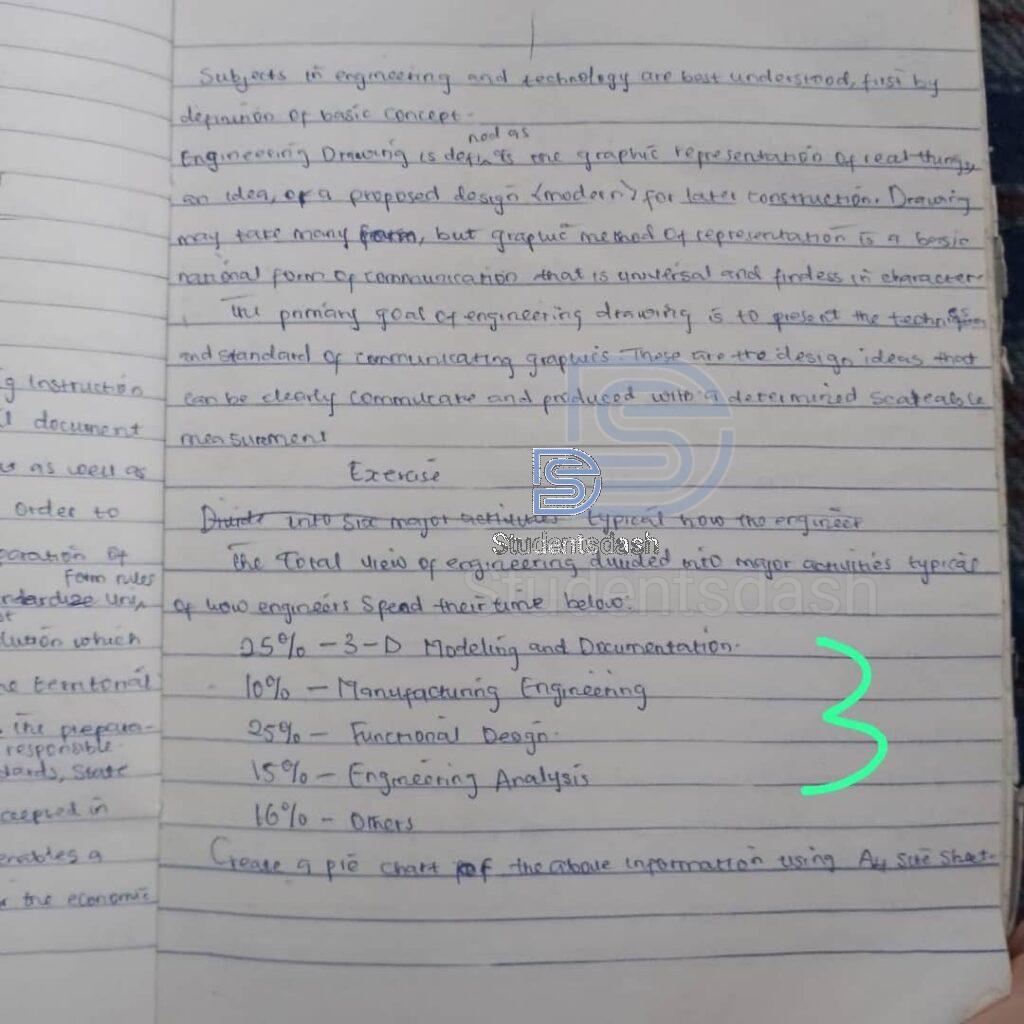 Subjects in engineering and technology are best understood, first by
definition of basic concept.
nod as
Engineering Drawing is the graphic representation of real things,
an idea, of a proposed design <modern> for later construction. Drawing
may take many form, but graphic method of representation is a basic
national form of communication that is universal and findess in character
The primary goal of engineering drawing is to present the
and standard of communicating graphics. These are the design ideas that
can be clearly commucate and produced with a determined scaleable
measurement
Exercise
Divide into six major activities typical how the engineer
The Total view of engineering divided into major activities typical
of how engineers spend their time below:
25% - 3-D Modeling and Documentation.
10% - Manufacturing Engineering
25% - Functional Design.
15% - Engineering Analysis
16% - Others
Create a pie chart of the above information using A4 size sheet.
g instruction
document
as well as
order to
paration of
Form rules
lution which
territorial
The prepara-
responsible.
dards, State
ccepted in
enables a
the economic
Studentsdash
Studentsdash